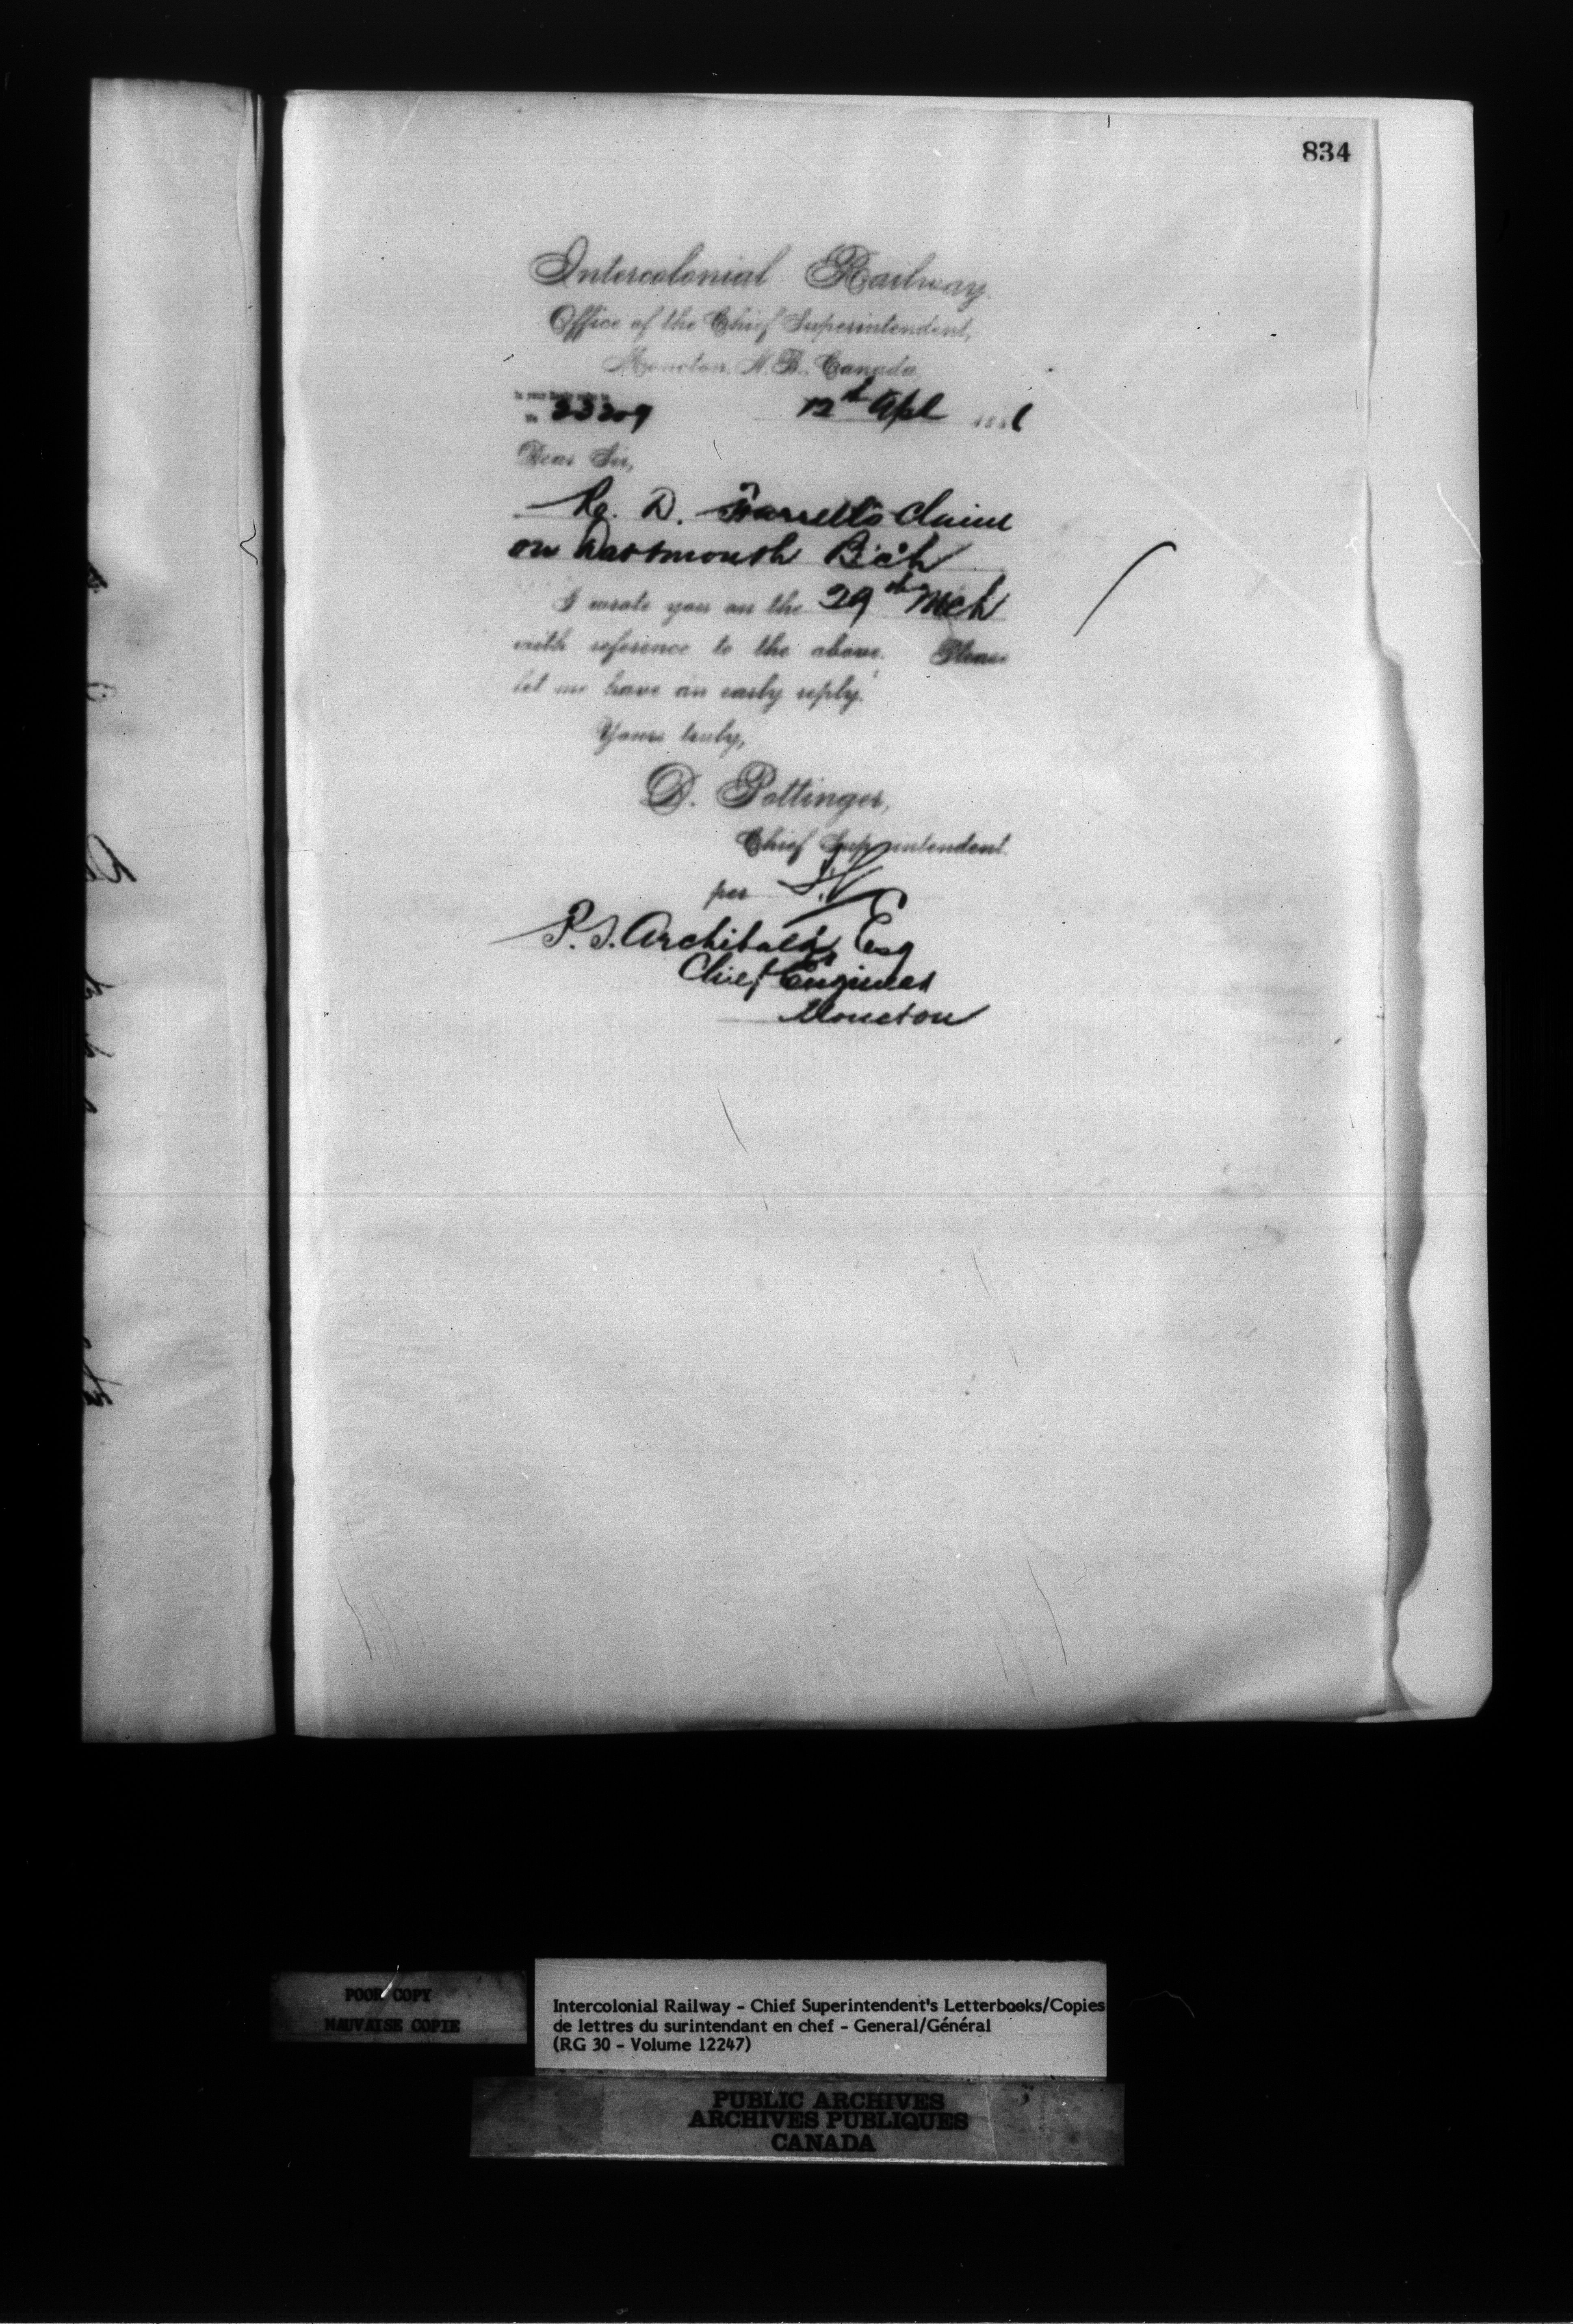 834
Intercolonial Railway.
Office of the Chief Superintendent,
Moncton, N.B., Canada,
In your Reply refer to
No 33209 12th Apl 188
Dear Sir,
Re. D. Farrell's Claim
on Dartmouth Bch
I wrote you on the 29th Mch
with reference to the above. Please
let me have an early reply.
Yours truly,
D. Pottinger,
Chief Superintendent.
per
P.S. Archibald, Esq
Chief Engineer
Moncton
POOR COPY
MAUVAISE COPIE
Intercolonial Railway - Chief Superintendent's Letterbooks/Copies
de lettres du surintendant en chef - General/Général
(RG 30 - Volume 12247)
PUBLIC ARCHIVES
ARCHIVES PUBLIQUES
CANADA